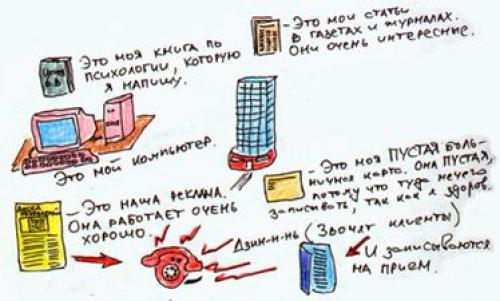 - Это моя книга по
психологии, которую
я напишу.
- Это мои статьи
в газетах и журналах.
Они очень интересные.
Это мой компьютер.
- Это моя ПУСТАЯ боль-
ничная карта. Она пустая,
потому что туда нечего
записывать, так как я здоров.
- Это наша реклама.
Она работает очень
хорошо.
Дзин-н-нь (Звонят клиенты)
И записываются
на приём.